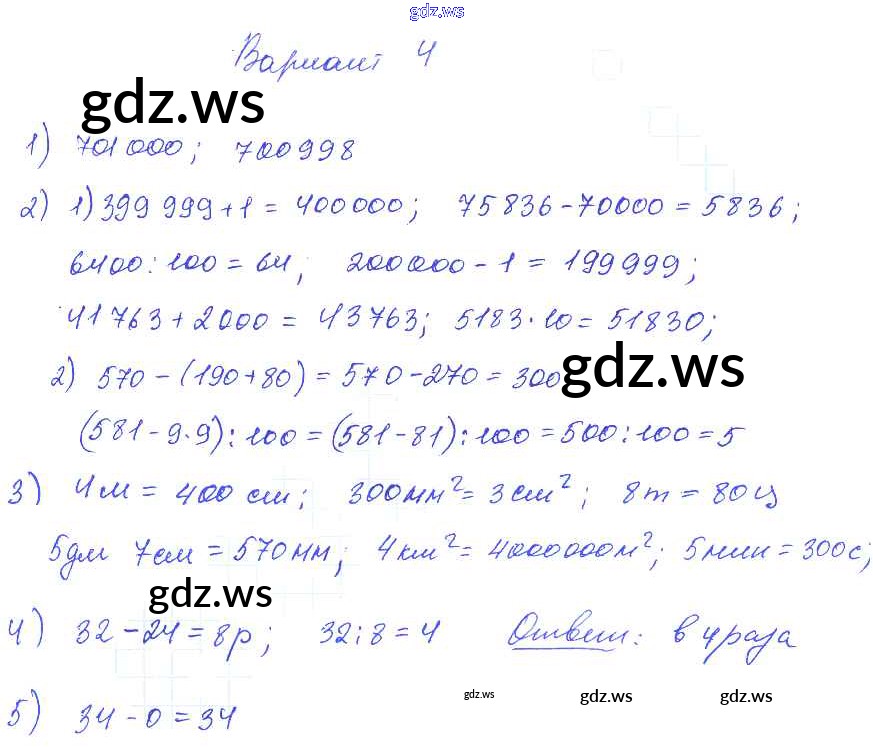 gdz.ws
Вариант 4
gdz.ws
1) 701 000; 700 998
2) 1) 399 999 + 1 = 400 000; 75 836 - 70000 = 5836;
6400 : 100 = 64; 200 000 - 1 = 199 999;
41 763 + 2 000 = 43 763; 5183 · 10 = 51830;
gdz.ws
2) 570 - (190 + 80) = 570 - 270 = 300
(581 - 9·9) : 100 = (581 - 81) : 100 = 500 : 100 = 5
3) 4 м = 400 см; 300 мм² = 3 см²; 8 т = 80 ц
5 дм 7 см = 570 мм; 4 км² = 4000000 м²; 5 мин = 300 с;
gdz.ws
4) 32 - 24 = 8 р; 32 : 8 = 4 Ответ: в 4 раза
gdz.ws gdz.ws gdz.ws
5) 34 - 0 = 34